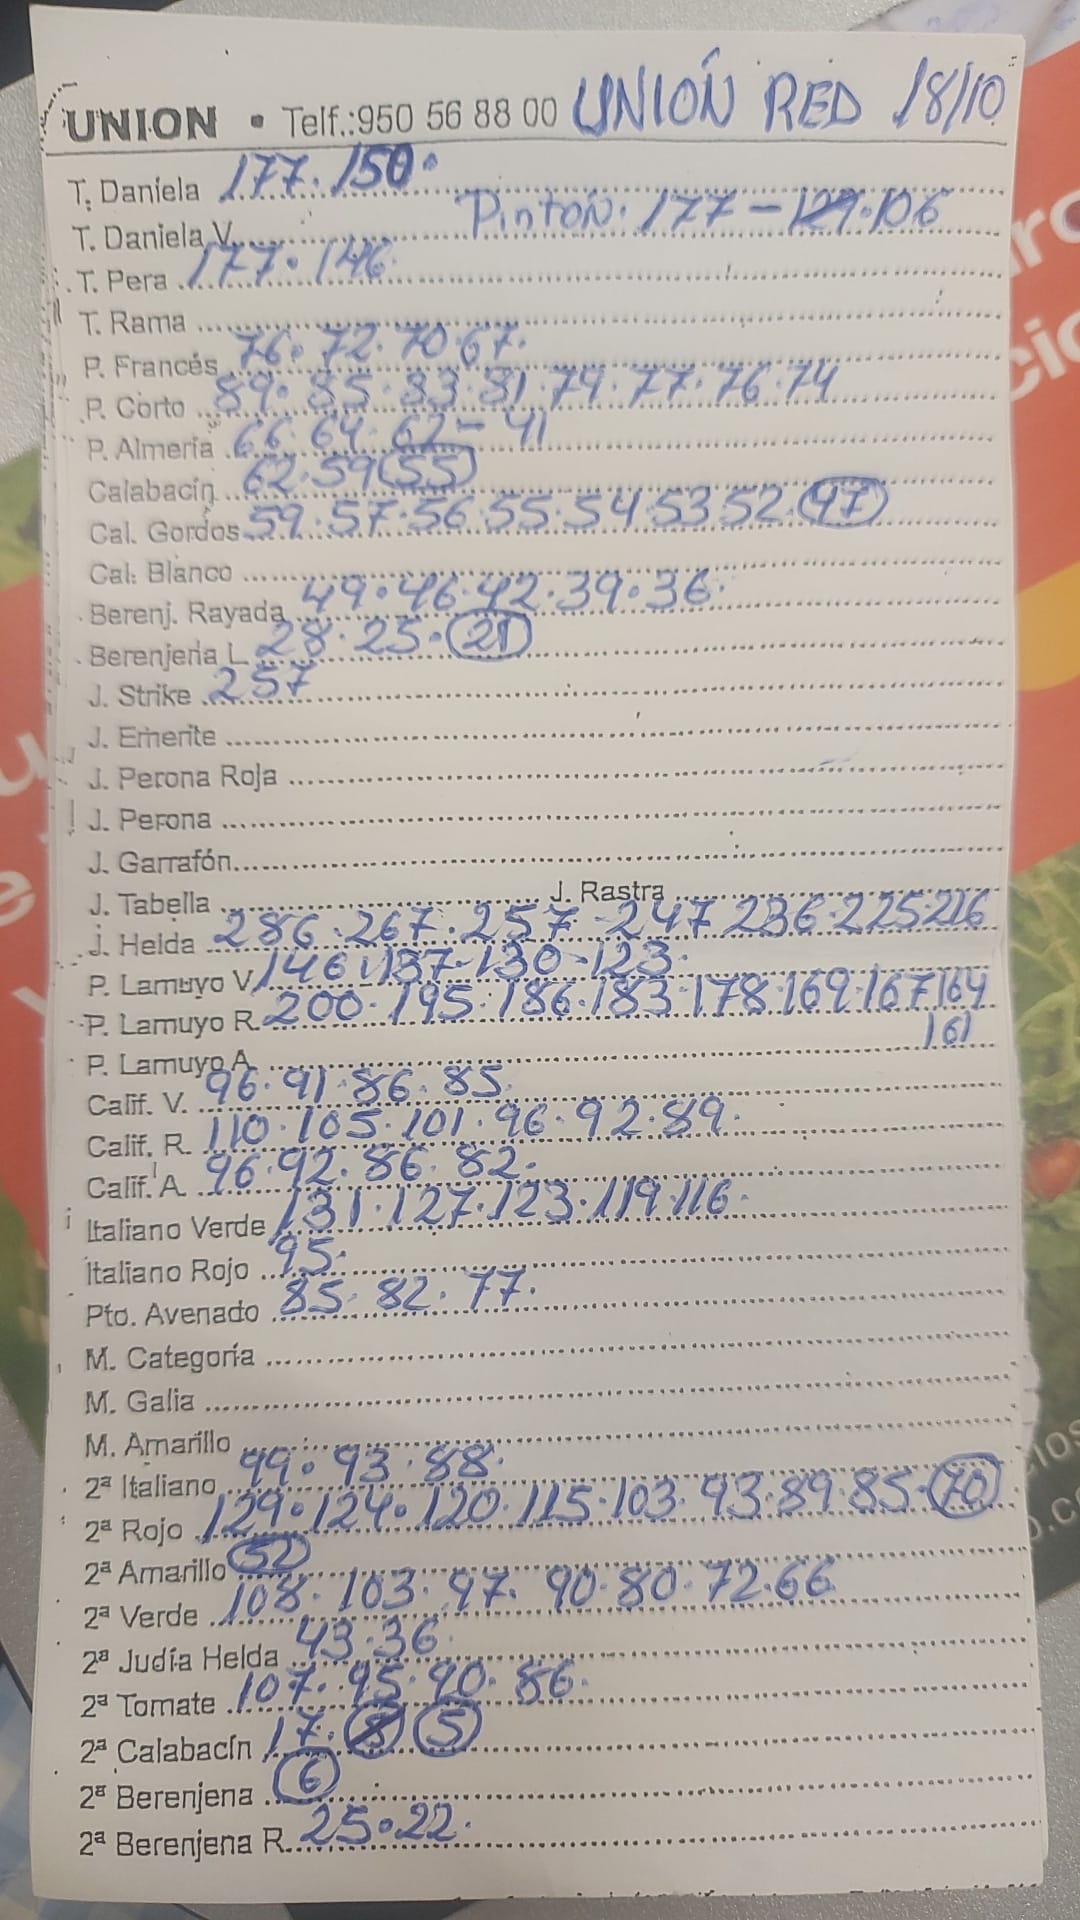 UNION • Telf.:950 56 88 00 UNIÓN RED 18/10
T. Daniela 177.150.
T. Daniela V. Pintón: 177-129.106
T. Pera 177.146.
T. Rama
P. Francés 76.72.70.67.
P. Corto 89.85.83.81.79.77.76.74
P. Almería 66.64.62-41
Calabacín 62.59(55)
Cal. Gordos 59.57.56.55.54.53 52.(47)
Cal. Blanco
Berenj. Rayada 49.46.42.39.36.
Berenjena L. 28.25.(21)
J. Strike 257
J. Emerite
J. Perona Roja
J. Perona
J. Garrafón
J. Tabella J. Rastra
J. Helda 286.267.257-247 236.225.216
P. Lamuyo V. 146.137-130-123.
P. Lamuyo R. 200.195.186.183.178.169.167 164
161
P. Lamuyo A.
Calif. V. 96.91.86.85.
Calif. R. 110.105.101.96.92.89.
Calif. A. 96.92.86.82.
Italiano Verde 131.127.123.119.116.
Italiano Rojo 95.
Pto. Avenado 85.82.77.
M. Categoría
M. Galia
M. Amarillo
2ª Italiano 99.93.88.
2ª Rojo 129.124.120.115.103.93.89.85.(70)
2ª Amarillo (52)
2ª Verde 108.103.97.90.80.72.66
2ª Judía Helda 43.36.
2ª Tomate 107.95.90.86.
2ª Calabacín 17.(8)(5)
2ª Berenjena (6)
2ª Berenjena R. 25.22.